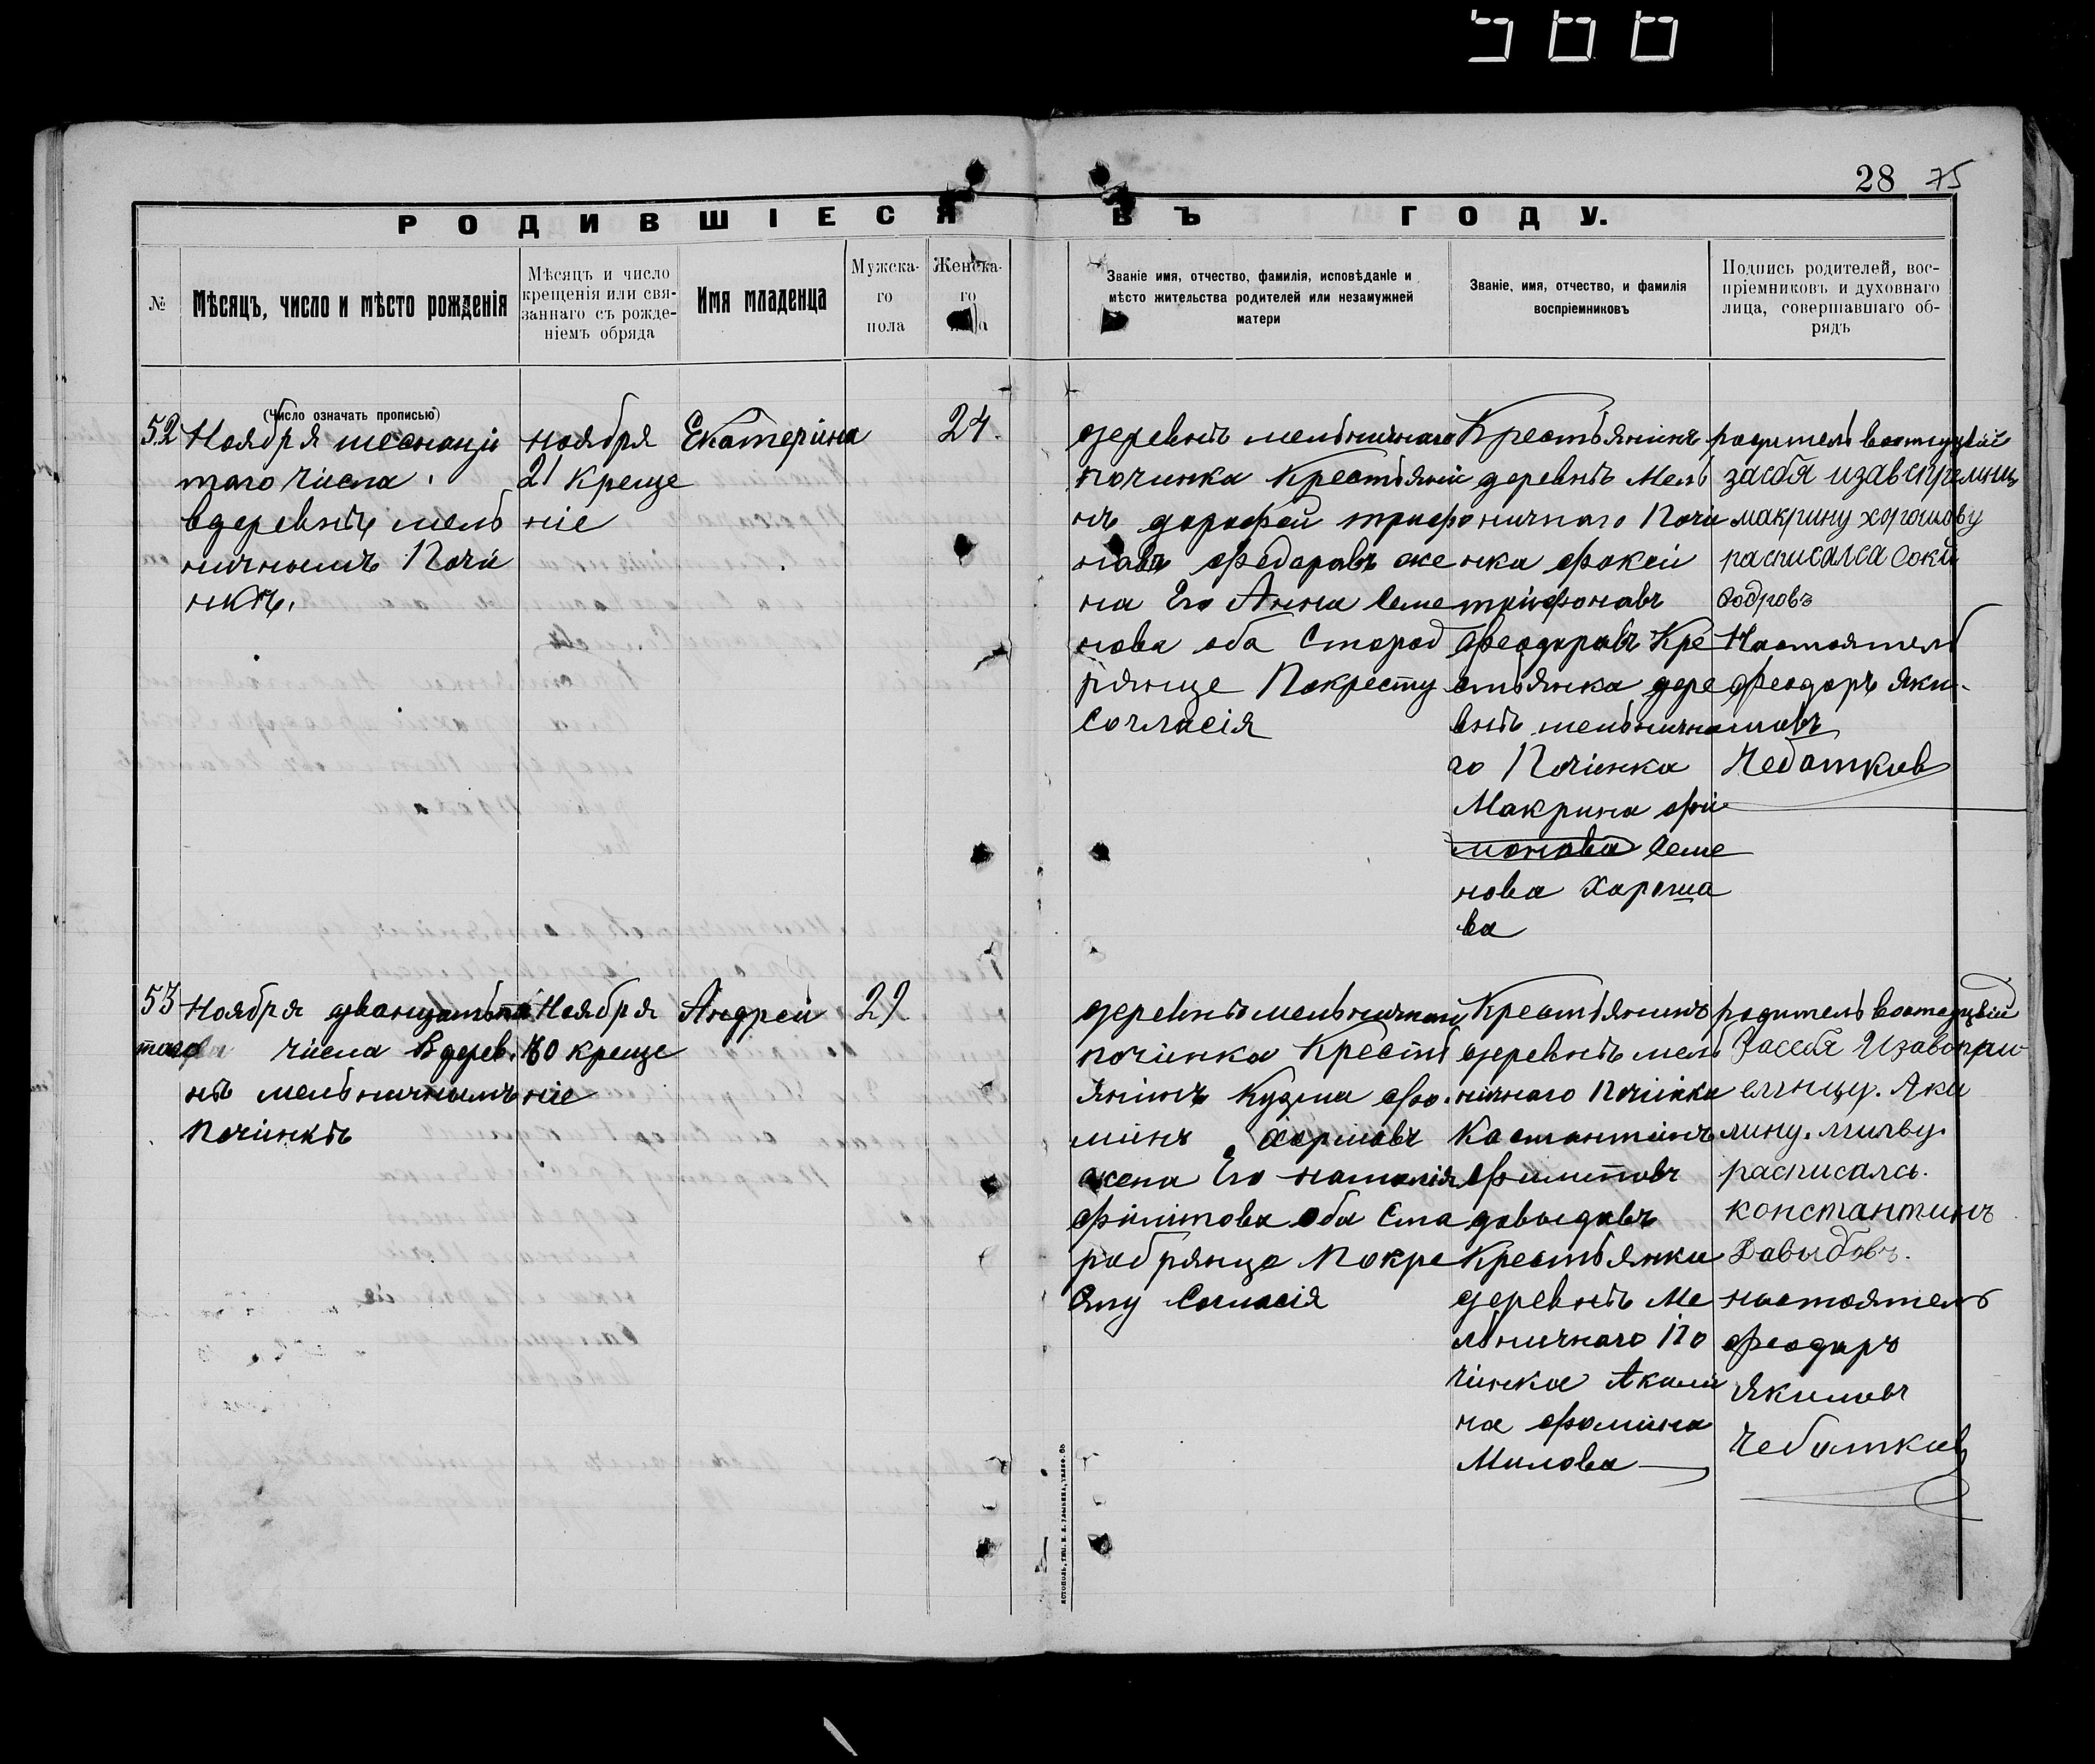 28 75
РОДИВШІЕСЯ ВЪ ГОДУ.
№
Мѣсяцъ, число и мѣсто рожденія
Мѣсяцъ и число
крещенія или свя-
заннаго съ рожде-
ніемъ обряда
Имя младенца
Мужска-
го
пола
Женска-
го
Званіе имя, отчество, фамилія, исповѣданіе и
мѣсто жительства родителей или незамужней
матери
Званіе, имя, отчество, и фамилія
воспріемниковъ
Подпись родителей, вос-
пріемниковъ и духовнаго
лица, совершавшаго об-
рядъ
(Число означать прописью)
52
Ноября шеснаці
таго Числа
вдеревнѣ мель
ничнымъ Почи
нкѣ.
ноября
21 Креще
ніе
Екатеріна
24.
деревнѣ мельничнаго
починка Крестьяни
нъ дорофей трифо
навъ Федоравъ же
на Его Анна Семе
нова оба Старод
рянце Покресту
Согласія
Крестьянинъ
деревнѣ Мель
ничнаго Почи
нка фокей
трифонавъ
Феодаравъ Кре
стьянка дере
внѣ мельнична
го Починка
Макрина фи
монава Семе
нова Хароша
ва
родитель
засбя
макрину хорошову
расписалса
Настоятель
Феодоръ Яки-
мавъ
Чебатков
53
Ноября дванцать
таго Числа Вдерев.
нѣ мельничнымъ
Починкѣ
Ноября
30 креще
ніе
Андрей
29
деревнѣ мельничнаго
починка Кресть
янинъ Кузма Фо.
минъ
жена Его наталія
Филипова оба Ста
робрянце Покре
сту Согласія
Крестьянинъ
деревнѣ мель
ничнаго Починка
Костантинъ
Филиповъ
давыдавъ
Крестьянка
деревнѣ Ме
льничнаго По
чинка Акили
на Фомина
Милова
родитель
Засебя
емницу. Аки
лину. милву.
расписалсь.
константинъ
Давыдовъ.
настоятель
Феодаръ
Якимовъ
Чебатков